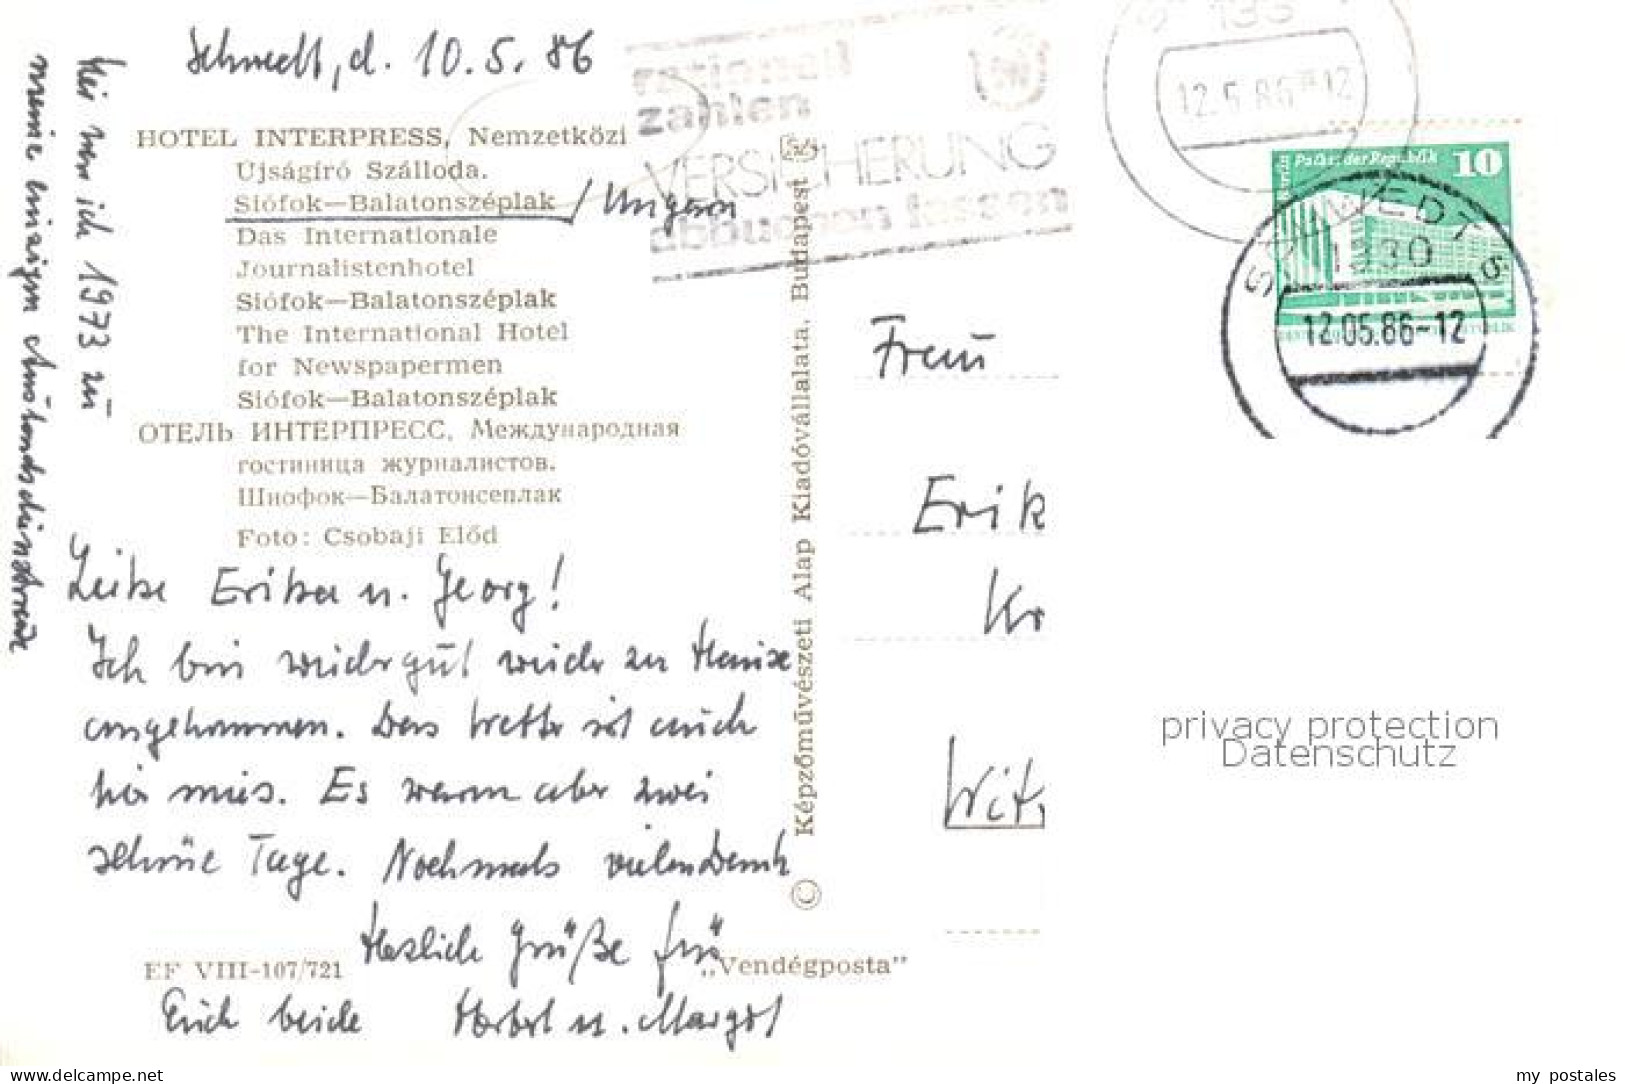 Schwedt, d. 10.5.86
HOTEL INTERPRESS, Nemzetközi
Ujságíró Szálloda.
Siófok—Balatonszéplak / Ungarn
Das Internationale
Journalistenhotel
Siófok—Balatonszéplak
The International Hotel
for Newspapermen
Siófok—Balatonszéplak
ОТЕЛЬ ИНТЕРПРЕСС, Международная
гостиница журналистов.
Шиофок—Балатонсеплак
Foto: Csobaji Előd
Liebe Erika u. Georg!
Ich bin wieder gut wieder zu Hause
angekommen. Das Wetter ist auch
hier mies. Es waren aber zwei
schöne Tage. Nochmals vielen Dank
Herzliche Grüße für
Euch beide Herbert u. Margot
EF VIII-107/721
„Vendégposta”
Hier war ich 1973 zu
meine einzigen Auslandsdienstreise
© Képzőművészeti Alap Kiadóvállalata, Budapest
rationell
zahlen
VERSICHERUNG
abbuchen lassen
12.5.86-12
Palast der Republik 10
SCHWEDT 6
1330
12.05.86-12
Frau
Erik
Kr
Witt
privacy protection
Datenschutz
www.delcampe.net
my_postales